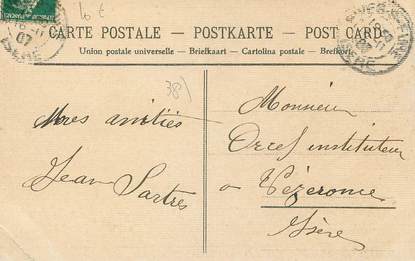 16 t
CARTE POSTALE — POSTKARTE — POST CARD
Union postale universelle — Briefkaart — Cartolina postale — Brefkort
ISÈRE
07
ISÈRE
38)
Mes amitiés
Jean Sartres
Monsieur
instituteur
à Vézeronce
Isère